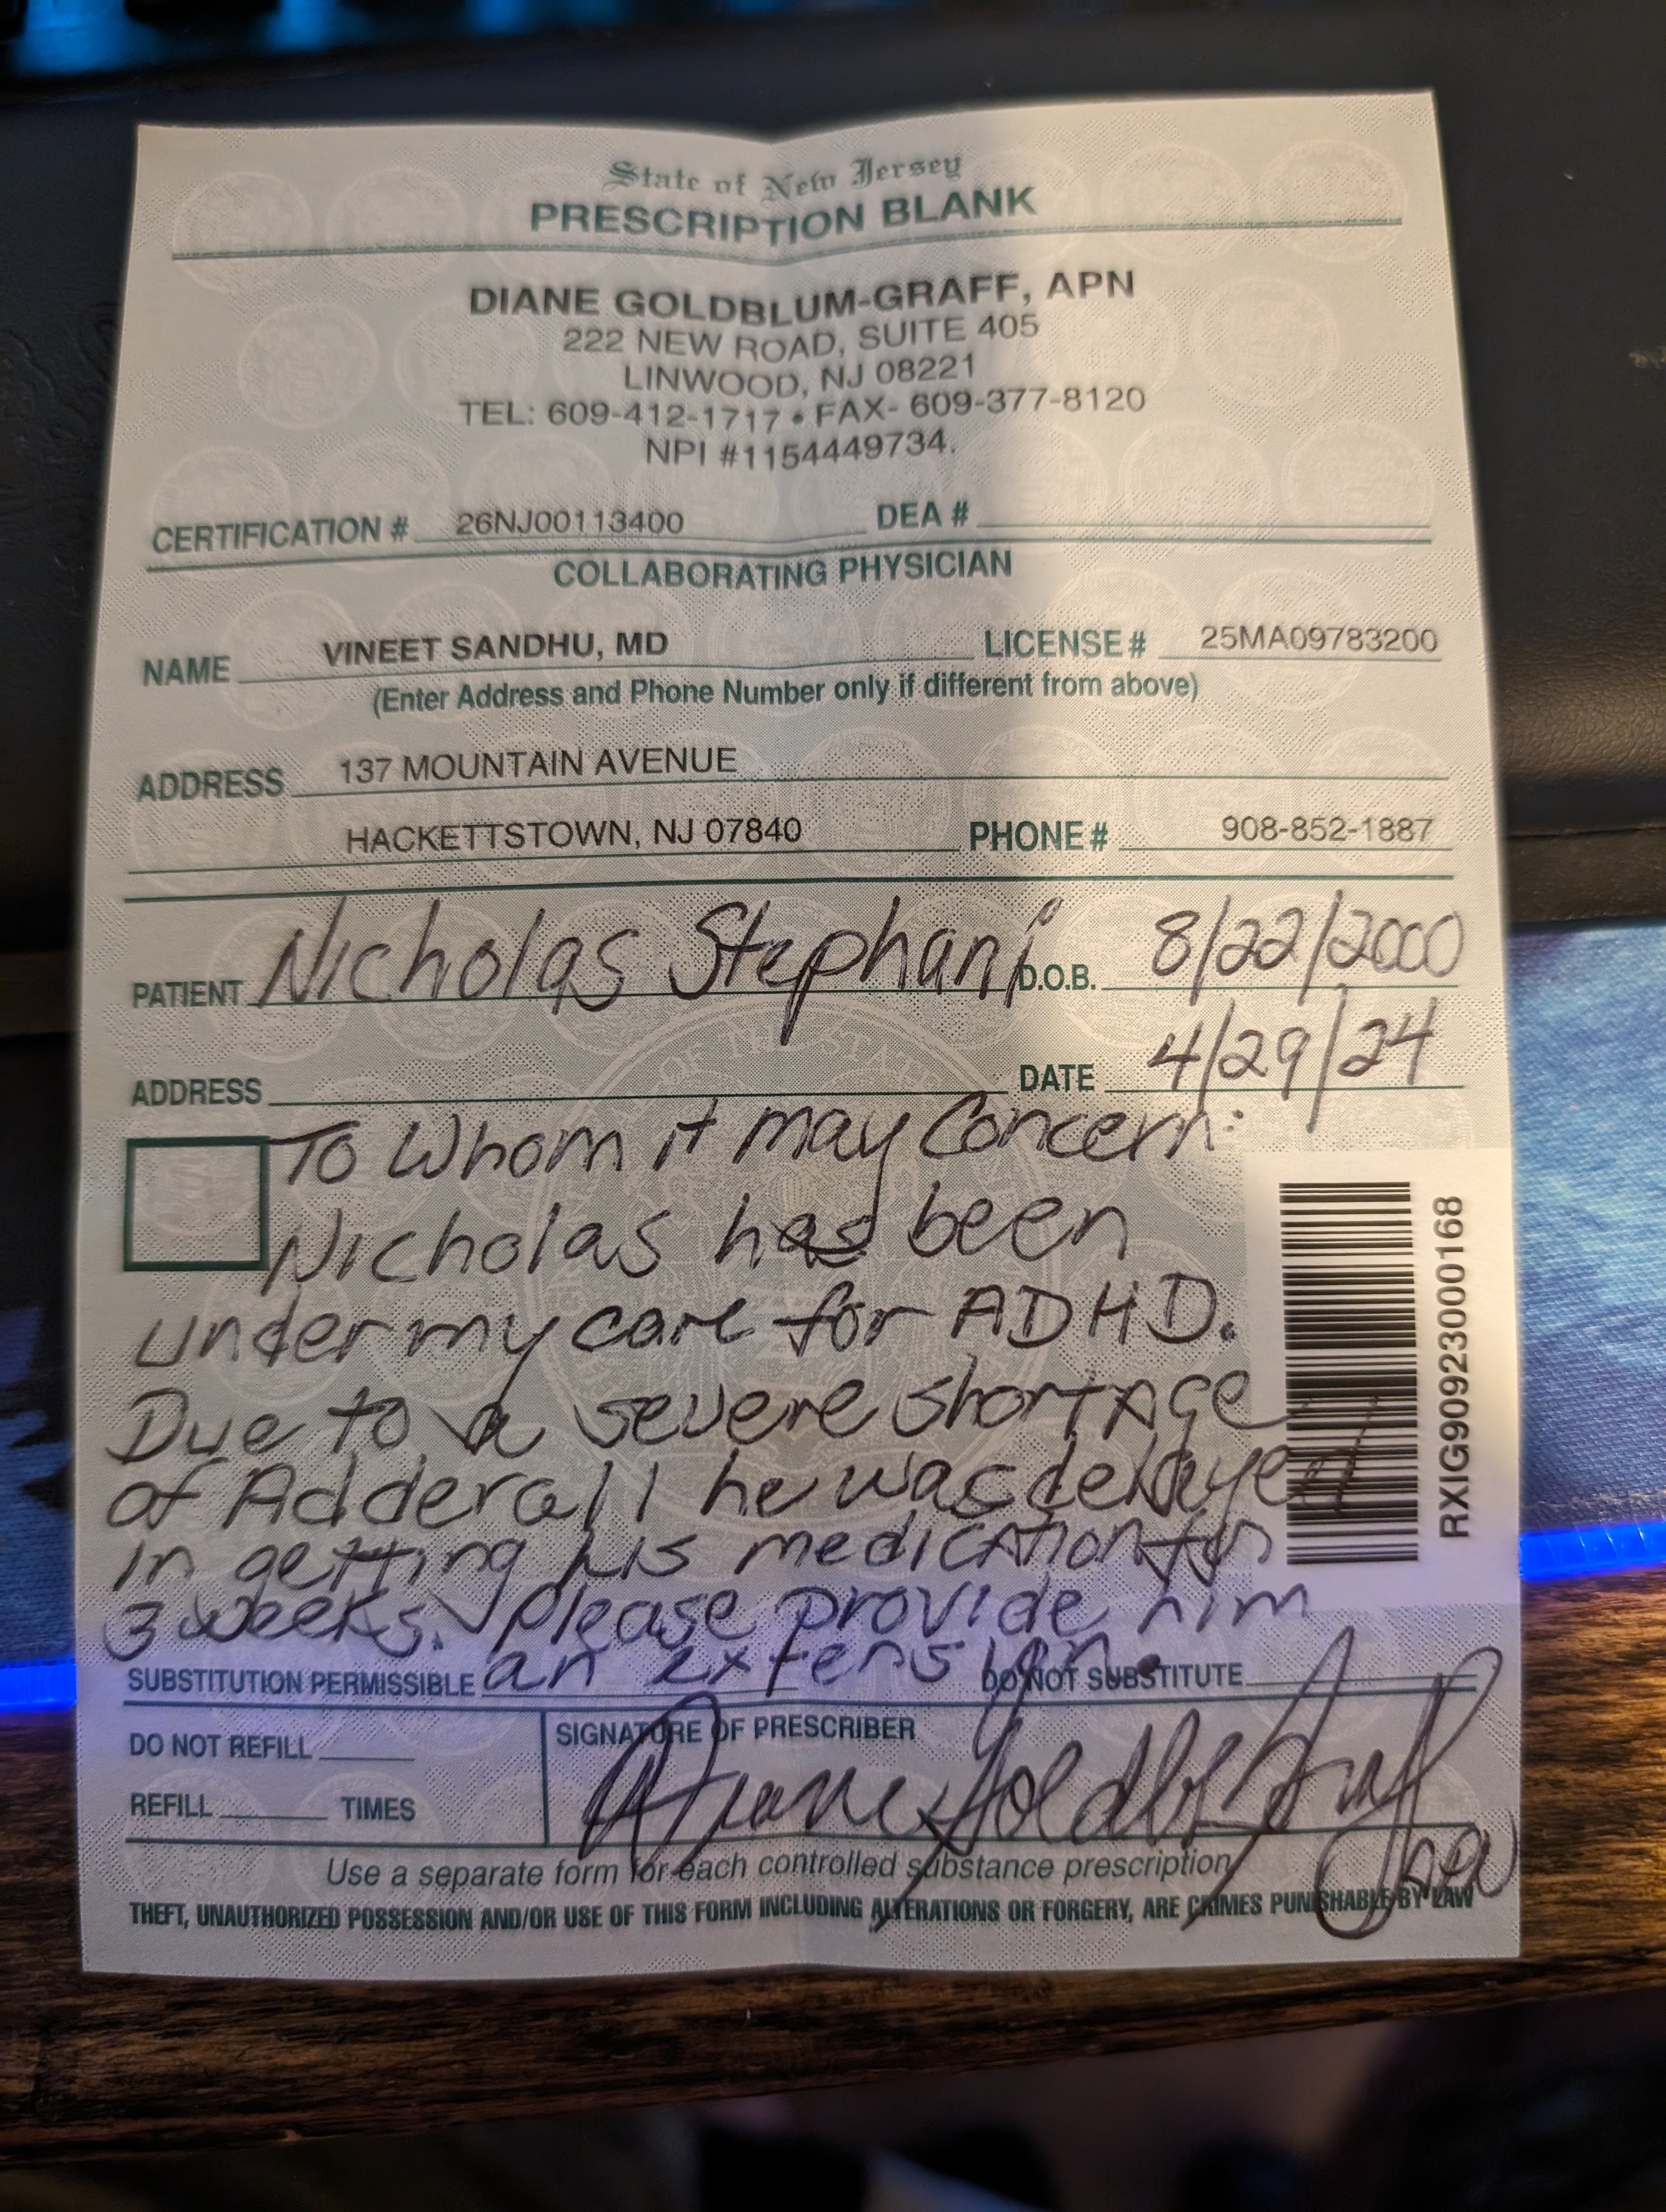 State of New Jersey
PRESCRIPTION BLANK
DIANE GOLDBLUM-GRAFF, APN
222 NEW ROAD, SUITE 405
LINWOOD, NJ 08221
TEL: 609-412-1717 • FAX- 609-377-8120
NPI #1154449734.
CERTIFICATION # 26NJ00113400 DEA #
COLLABORATING PHYSICIAN
NAME VINEET SANDHU, MD LICENSE # 25MA09783200
(Enter Address and Phone Number only if different from above)
ADDRESS 137 MOUNTAIN AVENUE
HACKETTSTOWN, NJ 07840 PHONE # 908-852-1887
PATIENT Nicholas Stephani D.O.B. 8/22/2000
ADDRESS DATE 4/29/24
To Whom it may Concern:
Nicholas has been
under my care for ADHD.
Due to a severe shortage
of Adderall he was delayed
in getting his medication
3 weeks. Please provide him
an extension.
RXIG909230000168
SUBSTITUTION PERMISSIBLE DO NOT SUBSTITUTE
DO NOT REFILL SIGNATURE OF PRESCRIBER
REFILL TIMES
Diane Goldbl Graff
Use a separate form for each controlled substance prescription
THEFT, UNAUTHORIZED POSSESSION AND/OR USE OF THIS FORM INCLUDING ALTERATIONS OR FORGERY, ARE CRIMES PUNISHABLE BY LAW